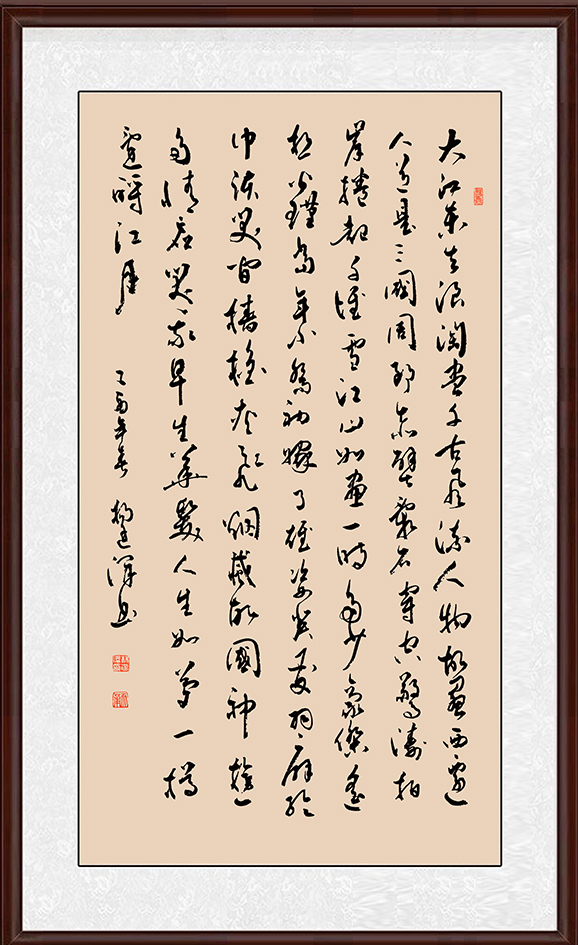 大江東去浪淘盡千古風流人物故壘西邊
人道是三國周郎赤壁亂石穿空驚濤拍
岸捲起千堆雪江山如畫一時多少豪傑遙
想公瑾當年小喬初嫁了雄姿英發羽扇綸
巾談笑間檣櫓灰飛煙滅故國神遊
多情應笑我早生華髮人生如夢一樽
還酹江月 乙酉年春 楊建書